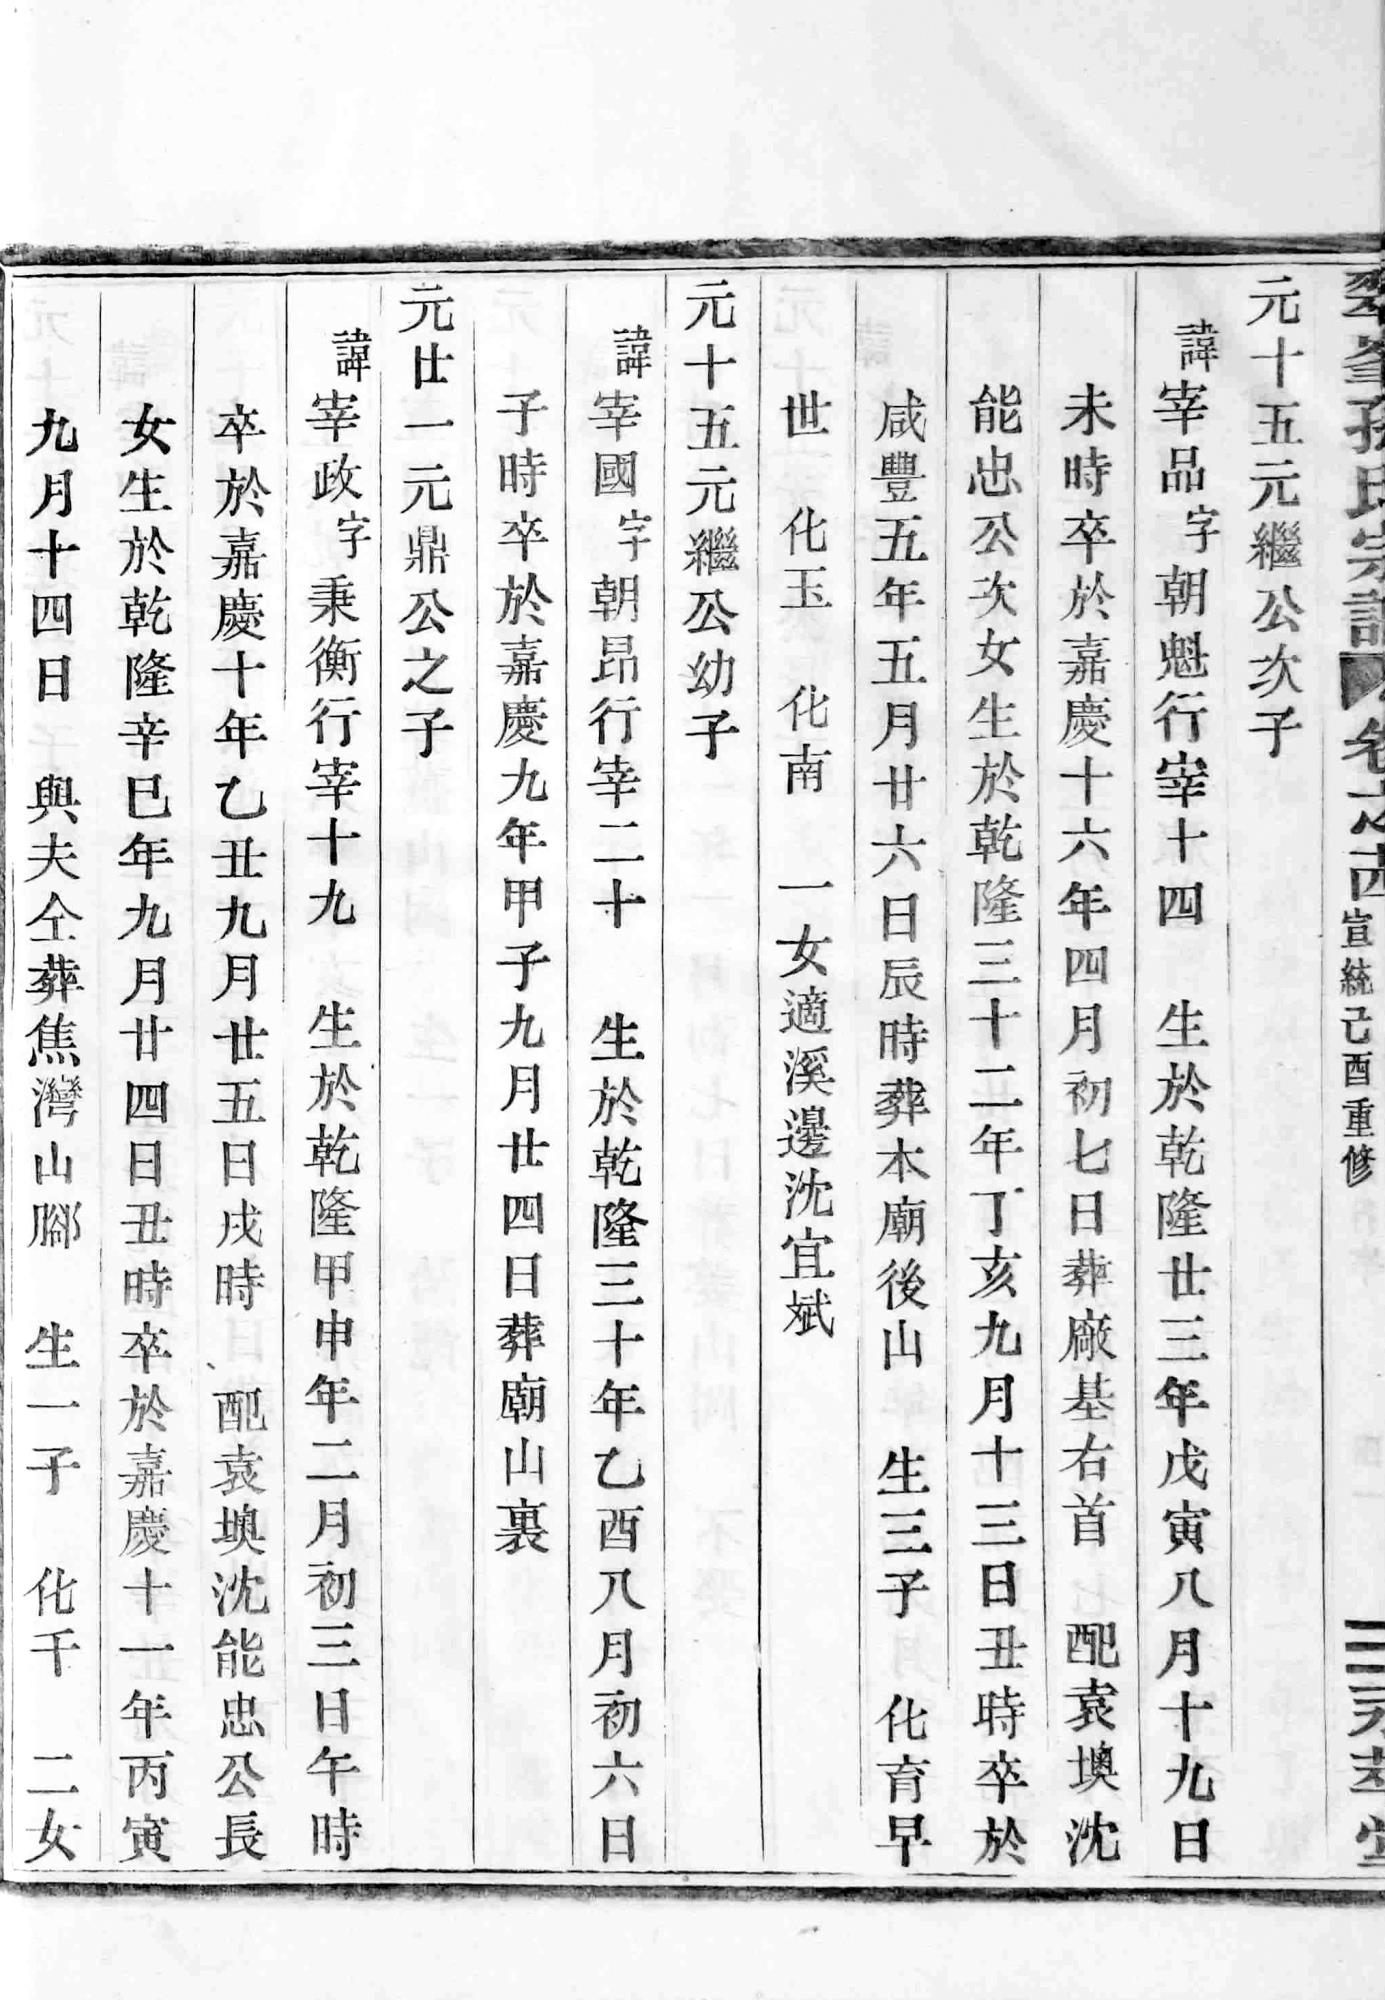 翠峯孫氏宗譜 卷之四 宣統己酉重修 永萃堂
元十五元繼公次子
諱宰品字朝魁行宰十四 生於乾隆廿三年戊寅八月十九日
未時卒於嘉慶十六年四月初七日葬廠基右首 配袁墺沈
能忠公次女生於乾隆三十二年丁亥九月十三日丑時卒於
咸豐五年五月廿六日辰時葬本廟後山 生三子 化育早
世 化玉 化南 一女適溪邊沈宜斌
元十五元繼公幼子
諱宰國字朝昂行宰二十 生於乾隆三十年乙酉八月初六日
子時卒於嘉慶九年甲子九月廿四日葬廟山裏
元廿一元鼎公之子
諱宰政字秉衡行宰十九 生於乾隆甲申年二月初三日午時
卒於嘉慶十年乙丑九月廿五日戌時 配袁墺沈能忠公長
女生於乾隆辛巳年九月廿四日丑時卒於嘉慶十一年丙寅
九月十四日 與夫仝葬焦灣山腳 生一子 化千 二女